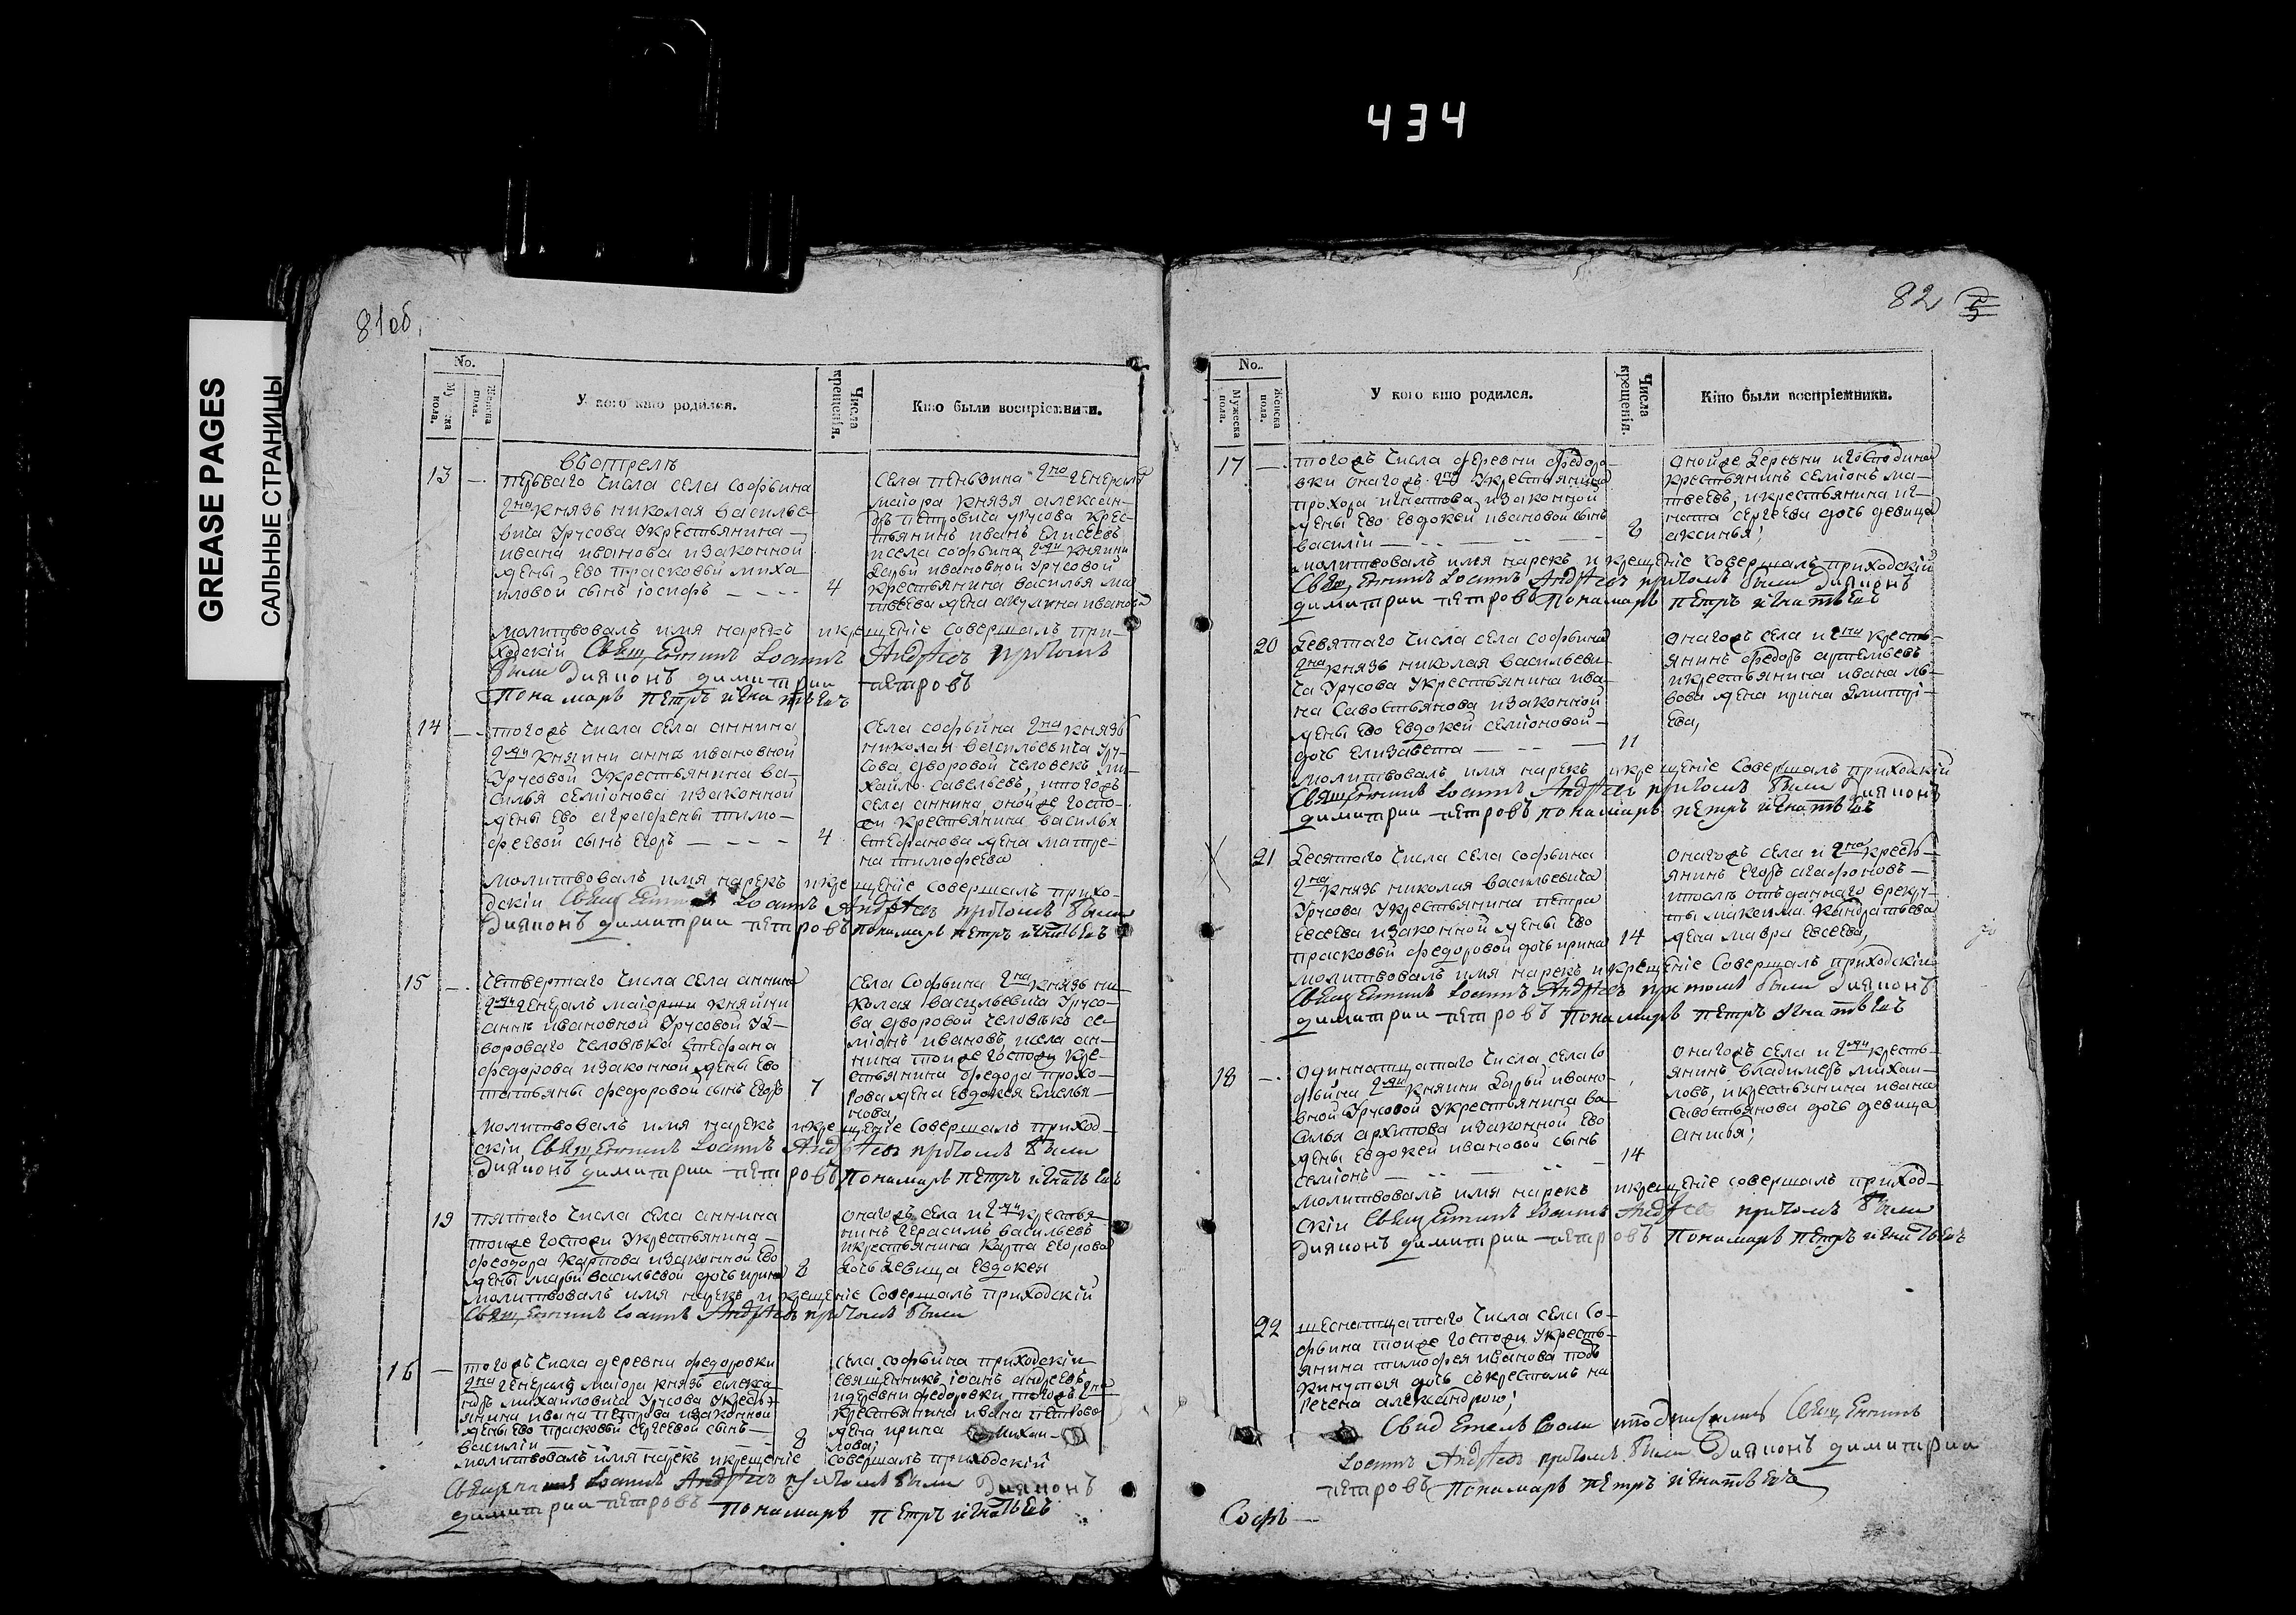 434
GREASE PAGES
САЛЬНЫЕ СТРАНИЦЫ
81 об.
No.
Мужеска пола.
Женска пола.
У кого кто родился.
Числа крещенія.
Кто были воспріемники.
13
перваго числа села софьина
князь николая василье-
вича Урусова Укрестьянина
ивана иванова изаконной
жены ево прасковьи миха
иловой сынъ іосифъ
4
села пензина генералъ
маіора князя алексан-
дъ петровича урусова крес-
тьянинъ иванъ елисеевъ
исела софьина княини
дарьи ивановной Урусовой
крестьянина василья ма
твеева жена акулина иванова
молитвовалъ имя нарекъ икрещеніе совершалъ при-
ходскій Священникъ Iоаннъ Андреевъ притомъ
были диячонъ димитрии петровъ
Пономарь петръ игнатьевъ
14
тогожъ числа села аннина
княини аннъ ивановной
Урусовой Укрестьянина ва-
силья семіонова изаконной
жены ево аграфены тимо-
феевой сынъ егоръ
4
села софьина князь
николая васильевича Уру-
сова дворовой человекъ ми-
хайло савельевъ, итогожъ
села аннина онойже госпо-
жи крестьянина василья
стефанова жена матре-
на тимофеева
молитвовалъ имя нарекъ икрещеніе совершалъ прихо-
дскіи Священникъ Iоаннъ Андреевъ притомъ были
Диячонъ димитрии петровъ пономарь петръ игнатьевъ
15
Четвертаго числа села аннина
генералъ маіорши княини
аннъ ивановной Урусовой Уд-
вороваго человека стефана
федорова изаконной жены ево
татьяны федоровой сынъ егоръ
7
села Софьина князь ни-
колая васильевича Урусо-
ва дворовой человекъ се-
міонъ ивановъ, исела ан-
нина тоиже госпожи кре-
стьянина федора прохо-
рова жена евдокея емелья-
нова,
молитвовалъ имя нарекъ икрещеніе совершалъ приход-
скіи Священникъ Iоаннъ Андреевъ притомъ были
Диячонъ димитрии петровъ Пономарь петръ игнатьевъ
19
пятаго числа села аннина
тоиже госпожи Укрестьянина
федора карпова изаконной ево
жены марьи васильевой дочь ирина
8
онагожъ села и крестья-
нинъ герасимъ васильевъ
икрестьянина карпа егорова
дочь девица евдокея
молитвовалъ имя нарекъ и крещеніе совершалъ приходскій
Священникъ Iоаннъ Андреевъ притомъ были
16
тогожъ числа деревни федоровки
генералъ маіора князь алекса
ндръ михайловича Урусова Укресть-
янина ивана петрова изаконной
жены ево прасковьи сергеевой сынъ
василіи
8
села софьина приходскіи
священникъ іоанъ андреевъ
идеревни федоровки тогожъ
крестьянина ивана петрова
жена ирина михаи-
лова,
молитвовалъ имя нарекъ икрещеніе совершалъ приходскій
Священникъ Iоаннъ Андреевъ притомъ были Диячонъ
димитрии петровъ Пономарь петръ игнатьевъ
82
No.
Мужеска пола.
Женска пола.
У кого кто родился.
Числа крещенія.
Кто были воспріемники.
17
тогожъ числа деревни федоро-
вки онагожъ Укрестьянина
прохора игнатова изаконной
жены ево евдокеи ивановой сынъ
василіи
8
онойже деревни игосподина
крестьянинъ семіонъ ма-
твеевъ, икрестьянина иг-
ната сергеева дочь девица
аксинья,
молитвовалъ имя нарекъ и крещеніе совершалъ приходскій
Священникъ Iоаннъ Андреевъ притомъ были Диячонъ
димитрии петровъ Пономарь петръ игнатьевъ
20
девятаго числа села софьина
князь николая васильеви-
ча Урусова Укрестьянина ива-
на савостьянова изаконной
жены ево евдокеи семіоновой
дочь елизавета
11
онагожъ села и кресть-
янинъ федоръ артемьевъ
икрестьянина ивана ль-
вова жена ирина дмитрі-
ева,
молитвовалъ имя нарекъ икрещеніе совершалъ приходскій
Священникъ Iоаннъ Андреевъ притомъ были Диячонъ
димитрии петровъ пономарь петръ игнатьевъ
21
десятаго числа села софьина
князь николая васильевича
Урусова Укрестьянина петра
евсеева изаконной жены ево
прасковьи федоровой дочь ирина
14
онагожъ села и кресть-
янинъ егоръ агафоновъ
ипослъ отъданнаго врекру-
ты максима кандратьева
жена мавра евсеева,
молитвовалъ имя нарекъ и крещеніе совершалъ приходскіи
Священникъ Iоаннъ Андреевъ притомъ были Диячонъ
димитрии петровъ Пономарь петръ игнатьевъ
18
одиннатцатаго числа села со
фьина княини дарьи ивано-
вной Урусовой Укрестьянина ва-
силья архипова изаконной ево
жены евдокеи ивановой сынъ
семіонъ
14
онагожъ села и кресть-
янинъ владимеръ михаи-
ловъ, икрестьянина ивана
савостьянова дочь девица
анисья,
молитвовалъ имя нарекъ икрещеніе совершалъ приход-
скіи Священникъ Iоаннъ Андреевъ притомъ были
Диячонъ димитрии петровъ Пономарь петръ игнатьевъ
22
шеснатцатаго числа села Со-
фьина тоиже госпожи Укресть-
янина тимофея иванова под
кинутая дочь скрестомъ на
речена александрою,
Свидетельствоми подписались Священникъ
Iоаннъ Андреевъ притомъ были Диячонъ димитрии
петровъ Пономарь петръ игнатьевъ
Софь